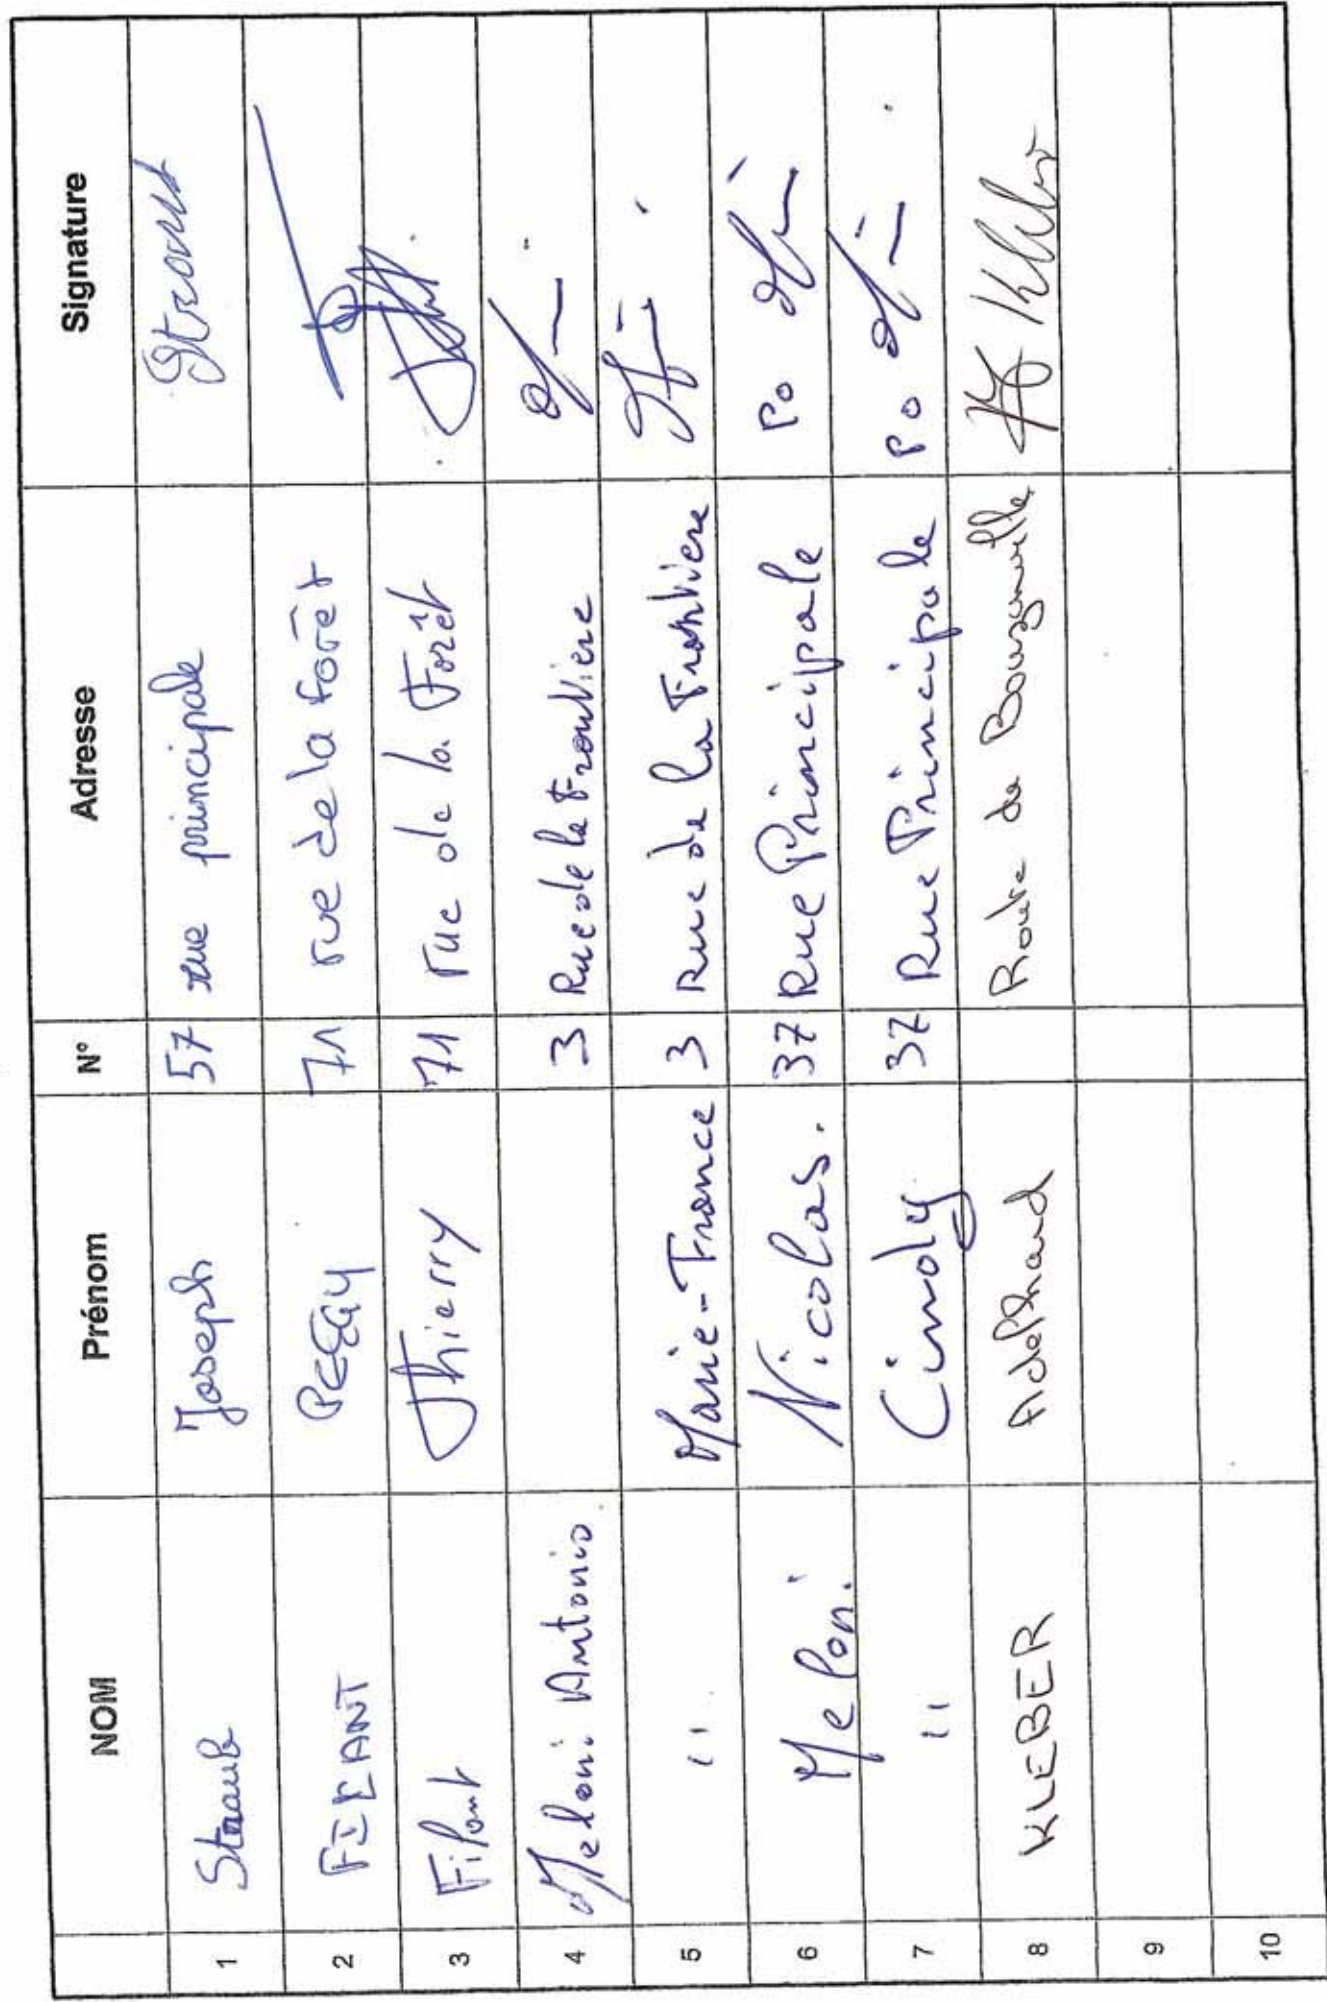 NOM Prénom N° Adresse Signature
1 Straub Joseph 57 rue principale Straub
2 FILANT PEGGY 71 rue de la forêt
3 Filant Thierry 71 rue de la Forêt
4 Meloni Antonio 3 Rue de la Frontiere
5 " Marie-France 3 Rue de la Frontiere
6 Meloni Nicolas. 37 Rue Principale Po
7 " Cindy 37 Rue Principale Po
8 KLEBER Adelhard Route de Bouzonville Kleber
9
10